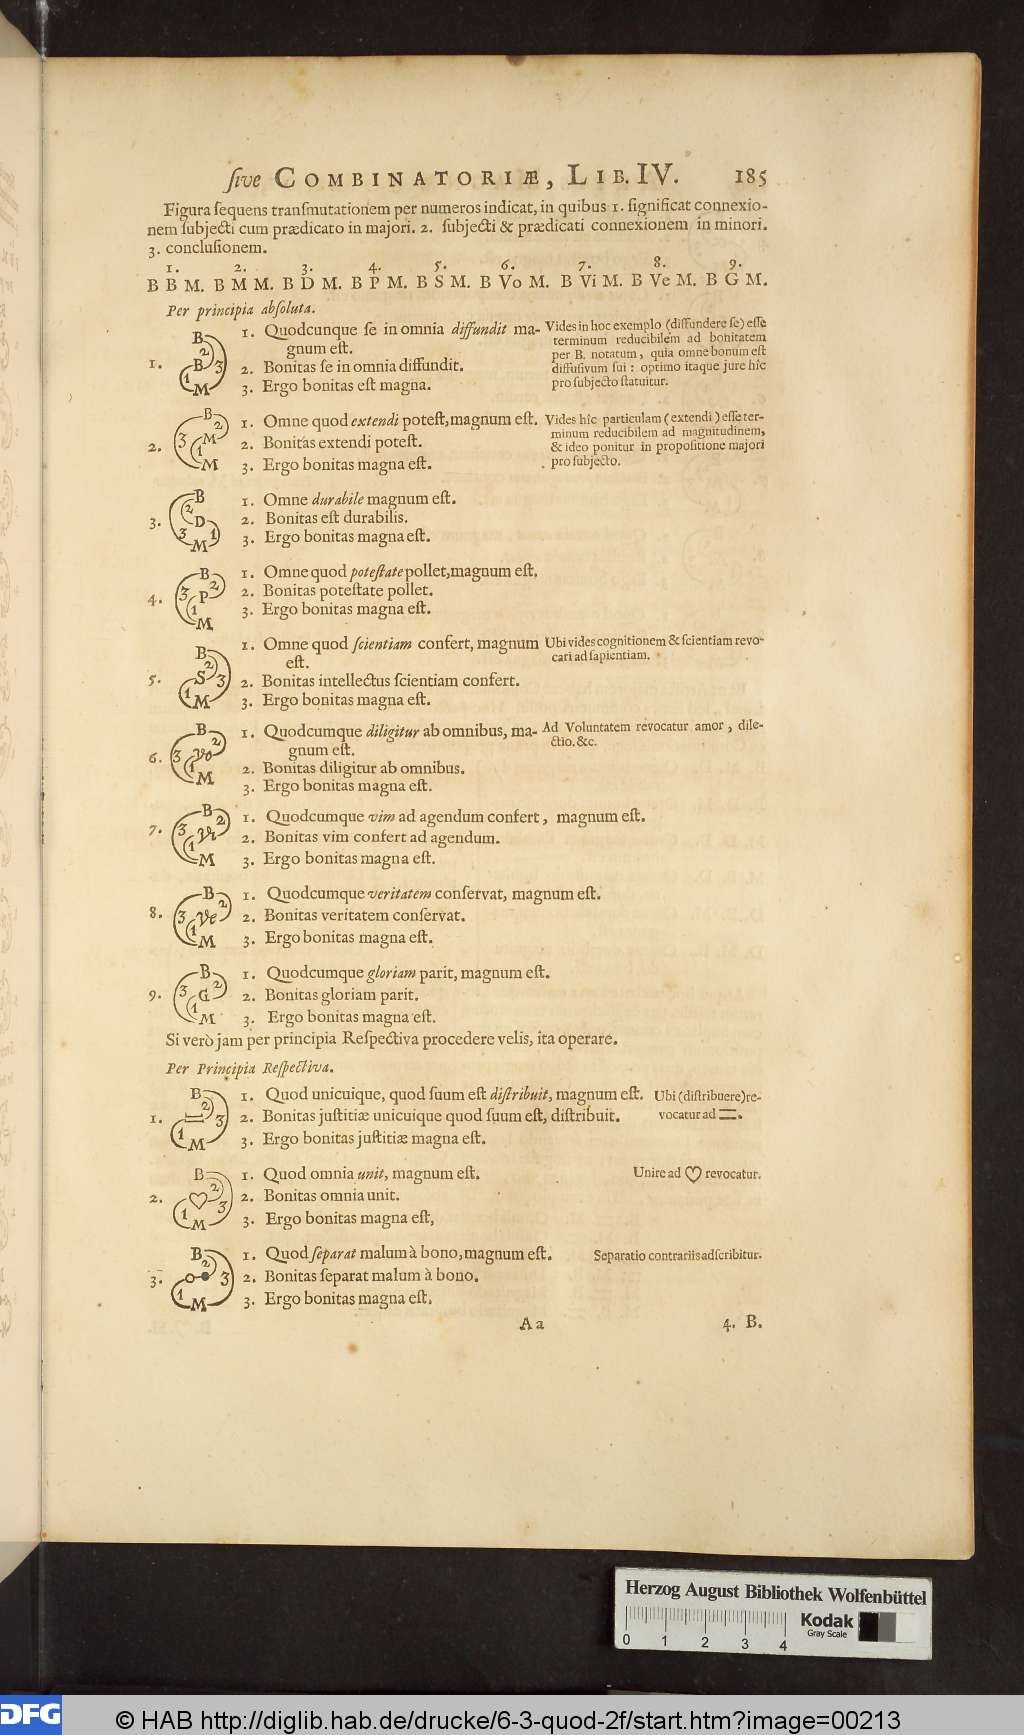 ſive COMBINATORIÆ, LIB. IV. 185
Figura ſequens tranſmutationem per numeros indicat, in quibus 1. ſignificat connexio-
nem ſubjecti cum prædicato in majori. 2. ſubjecti & prædicati connexionem in minori.
3. concluſionem.
1. 2. 3. 4. 5. 6. 7. 8. 9.
B B M. B M M. B D M. B P M. B S M. B Vo M. B Vi M. B Ve M. B G M.
Per principia abſoluta.
1. B 2 B 3 1 M
1. Quodcunque ſe in omnia diffundit ma-
gnum eſt.
2. Bonitas ſe in omnia diffundit.
3. Ergo bonitas eſt magna.
Vides in hoc exemplo (diffundere ſe) eſſe
terminum reducibilem ad bonitatem
per B. notatum, quia omne bonum eſt
diffuſivum ſui: optimo itaque jure hîc
pro ſubjecto ſtatuitur.
2. B 2 3 M 1 M
1. Omne quod extendi poteſt, magnum eſt.
2. Bonitas extendi poteſt.
3. Ergo bonitas magna eſt.
Vides hîc particulam (extendi) eſſe ter-
minum reducibilem ad magnitudinem,
& ideo ponitur in propoſitione majori
pro ſubjecto.
3. B 2 D 3 1 M
1. Omne durabile magnum eſt.
2. Bonitas eſt durabilis.
3. Ergo bonitas magna eſt.
4. B 3 2 P 1 M
1. Omne quod poteſtate pollet, magnum eſt.
2. Bonitas poteſtate pollet.
3. Ergo bonitas magna eſt.
5. B 2 S 3 1 M
1. Omne quod ſcientiam confert, magnum
eſt.
2. Bonitas intellectus ſcientiam confert.
3. Ergo bonitas magna eſt.
Ubi vides cognitionem & ſcientiam revo-
cari ad ſapientiam.
6. B 2 3 Vo 1 M
1. Quodcumque diligitur ab omnibus, ma-
gnum eſt.
2. Bonitas diligitur ab omnibus.
3. Ergo bonitas magna eſt.
Ad Voluntatem revocatur amor, dile-
ctio. &c.
7. B 2 3 Vi 1 M
1. Quodcumque vim ad agendum confert, magnum eſt.
2. Bonitas vim confert ad agendum.
3. Ergo bonitas magna eſt.
8. B 2 3 Ve 1 M
1. Quodcumque veritatem conſervat, magnum eſt.
2. Bonitas veritatem conſervat.
3. Ergo bonitas magna eſt.
9. B 2 3 G 1 M
1. Quodcumque gloriam parit, magnum eſt.
2. Bonitas gloriam parit.
3. Ergo bonitas magna eſt.
Si verò jam per principia Reſpectiva procedere velis, ita operare.
Per Principia Reſpectiva.
1. B 2 3 1 M
1. Quod unicuique, quod ſuum eſt diſtribuit, magnum eſt.
2. Bonitas juſtitiæ unicuique quod ſuum eſt, diſtribuit.
3. Ergo bonitas juſtitiæ magna eſt.
Ubi (diſtribuere) re-
vocatur ad =.
2. B 2 ♡ 3 1 M
1. Quod omnia unit, magnum eſt.
2. Bonitas omnia unit.
3. Ergo bonitas magna eſt,
Unire ad ♡ revocatur.
3. B 2 3 1 M
1. Quod ſeparat malum à bono, magnum eſt.
2. Bonitas ſeparat malum à bono.
3. Ergo bonitas magna eſt.
Separatio contrariis adſcribitur.
A a 4. B.
Herzog August Bibliothek Wolfenbüttel
0 1 2 3 4
Kodak
Gray Scale
DFG
© HAB http://diglib.hab.de/drucke/6-3-quod-2f/start.htm?image=00213